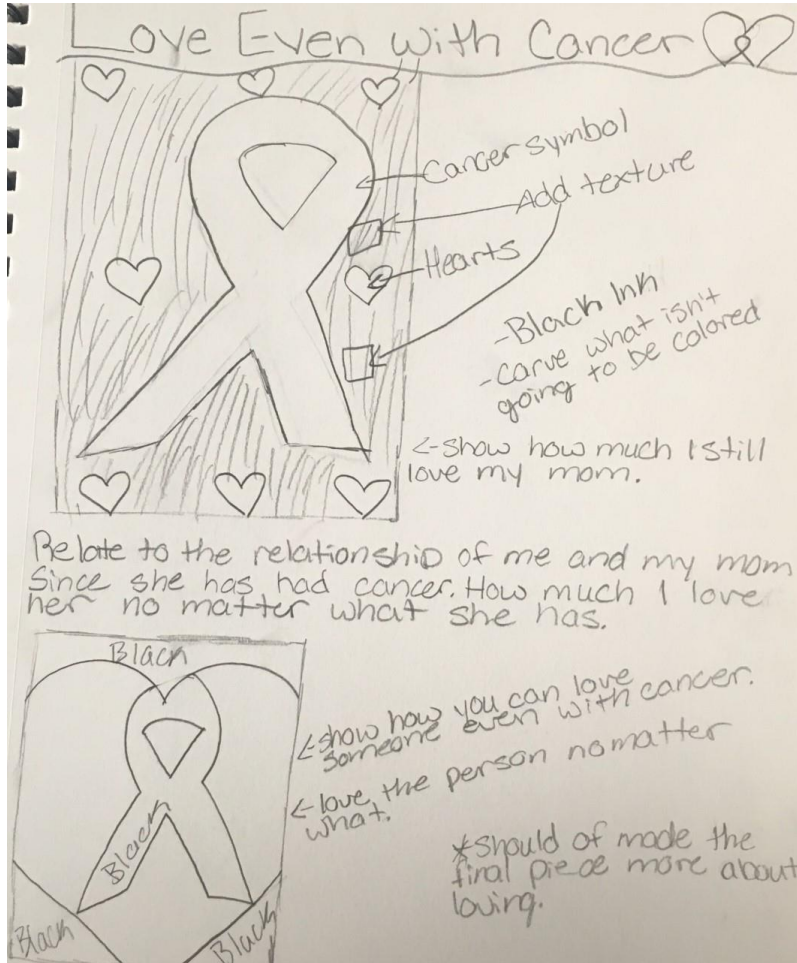 Love Even with Cancer
Cancer symbol
Add texture
Hearts
-Black Ink
-carve what isn't
going to be colored
<-show how much I still
love my mom.
Relate to the relationship of me and my mom
Since she has had cancer. How much I love
her no matter what she has.
Black
<-show how you can love
someone even with cancer.
<-love the person no matter
what.
Black
*Should of made the
final piece more about
loving.
Black
Black